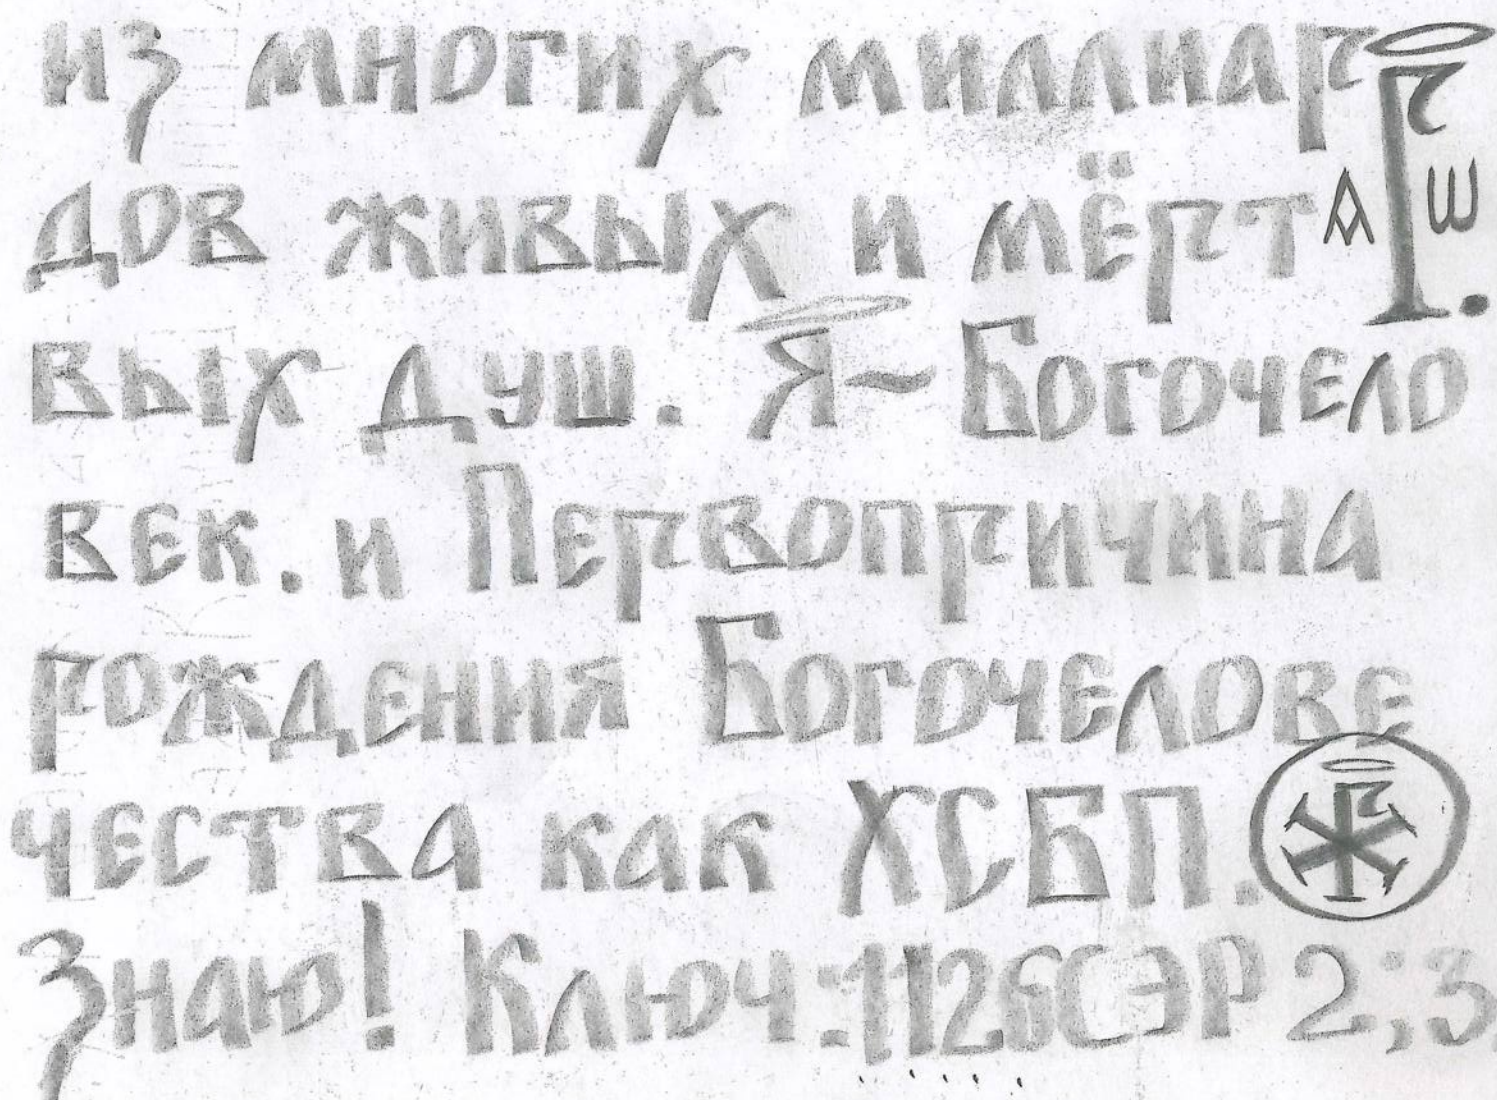 из многих миллиар
дов живых и мёрт
А Ш
вых душ. Я~Богочело
век. и Первопричина
рождения Богочелове
чества как ХСБП.
Знаю! Ключ:1126СЭР 2;3